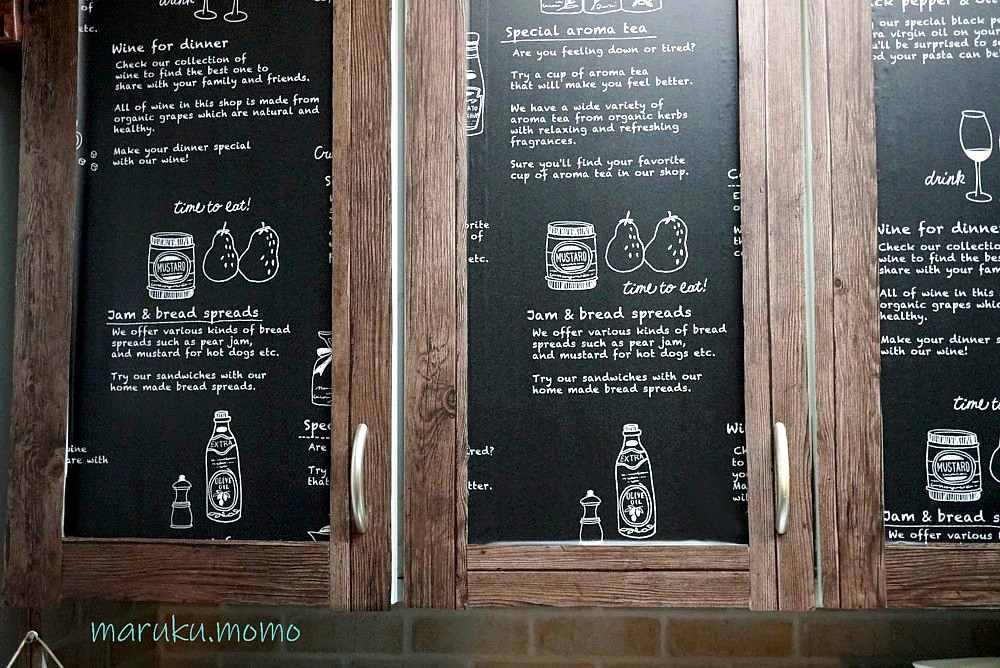 drink
etc.
Wine for dinner
Check our collection of
wine to find the best one to
share with your family and friends.
All of wine in this shop is made from
organic grapes which are natural and
healthy.
Make your dinner special
with our wine!
time to eat!
MUSTARD
Jam & bread spreads
We offer various kinds of bread
spreads such as pear jam,
and mustard for hot dogs etc.
Try our sandwiches with our
home made bread spreads.
EXTRA
OLIVE
OIL
are with
Are
Try
that
Special aroma tea
Are you feeling down or tired?
Try a cup of aroma tea
that will make you feel better.
We have a wide variety of
aroma tea from organic herbs
with relaxing and refreshing
fragrances.
Sure you'll find your favorite
cup of aroma tea in our shop.
of
etc.
MUSTARD
time to eat!
Jam & bread spreads
We offer various kinds of bread
spreads such as pear jam,
and mustard for hot dogs etc.
Try our sandwiches with our
home made bread spreads.
EXTRA
OLIVE
OIL
pepper &
our special black
virgin oil on your
be surprised to
your pasta can be
drink
Wine for dinner
Check our
wine to find the best
share with your
All of wine in this
organic grapes
healthy.
Make your dinner
with our wine!
time
MUSTARD
Jam & bread
We offer various
maruku.momo